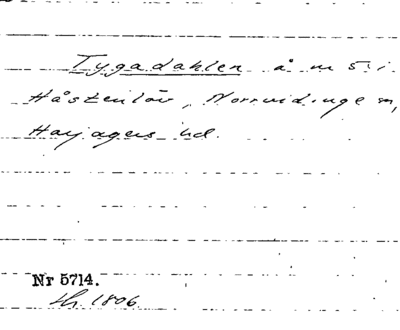 Tygadahlen å m 5 i
Håstenlöv, Norrvidinge sn,
Harjagers hd.
Nr 5714.
1806.